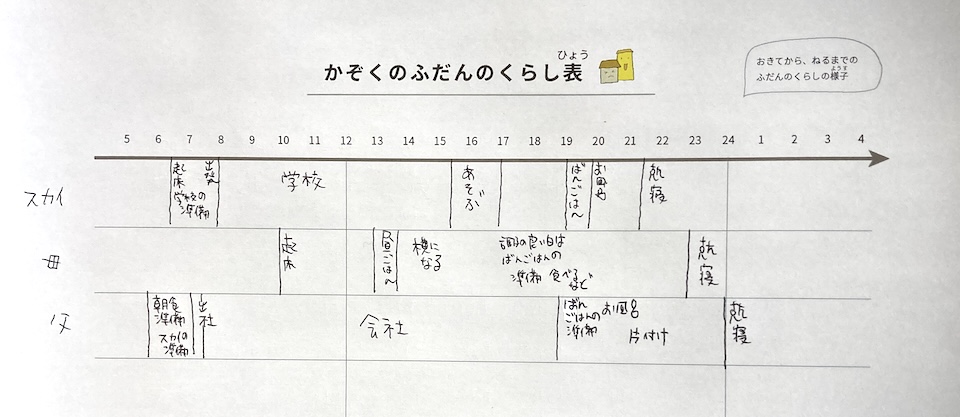 ひょう
かぞくのふだんのくらし表
おきてから、ねるまでの
ようす
ふだんのくらしの様子
5 6 7 8 9 10 11 12 13 14 15 16 17 18 19 20 21 22 23 24 1 2 3 4
スカイ
起床
学校の
準備
出発
学校
あそぶ
ばんごはん
お風呂
就寝
母
起床
昼ごはん
横に
なる
調子の良い日は
ばんごはんの
準備 食べる
など
就寝
父
朝食
準備
スカイの
準備
出社
会社
ばん
ごはんの
準備
お風呂
片付け
就寝